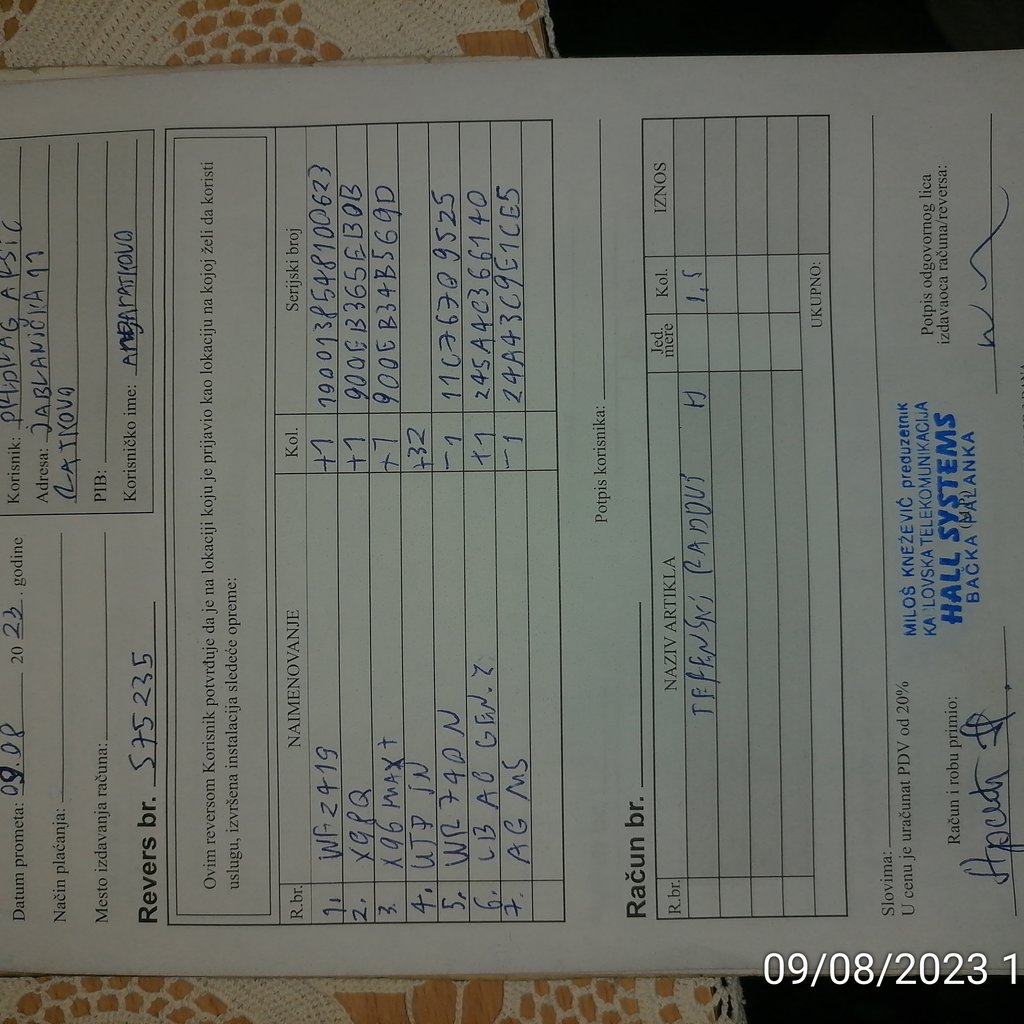 Datum prometa: 09.08 20 23 . godine
Način plaćanja:
Mesto izdavanja računa:
Korisnik: PREDRAG ARSIĆ
Adresa: JABLANIČKA 97
RATKOVO
PIB:
Korisničko ime:
Revers br. 575235
Ovim reversom Korisnik potvrđuje da je na lokaciji koju je prijavio kao lokaciju na kojoj želi da koristi
uslugu, izvršena instalacija sledeće opreme:
R.br. NAIMENOVANJE Kol. Serijski broj
1. WF2419 +1
2. X98Q +1 900EB365EB0B
3. X96 MAX+ +1 900EB34B569D
4. UTP IN +32
5. WR740N -1 11C767009525
6. LB AC GEN. 2 +1 245A4C366140
7. AG M5 -1 24A43C9E1CE5
Potpis korisnika:
Račun br.
R.br. NAZIV ARTIKLA Jed. mere Kol. IZNOS
TERENSKI RADOVI H 1,5
UKUPNO:
Slovima:
U cenu je uračunat PDV od 20%
Račun i robu primio:
MILOŠ KNEŽEVIĆ preduzetnik
KA LOVSKA TELEKOMUNIKACIJA
HALL SYSTEMS
BAČKA PALANKA
(M.P.)
Potpis odgovornog lica
izdavaoca računa/reversa:
09/08/2023 1